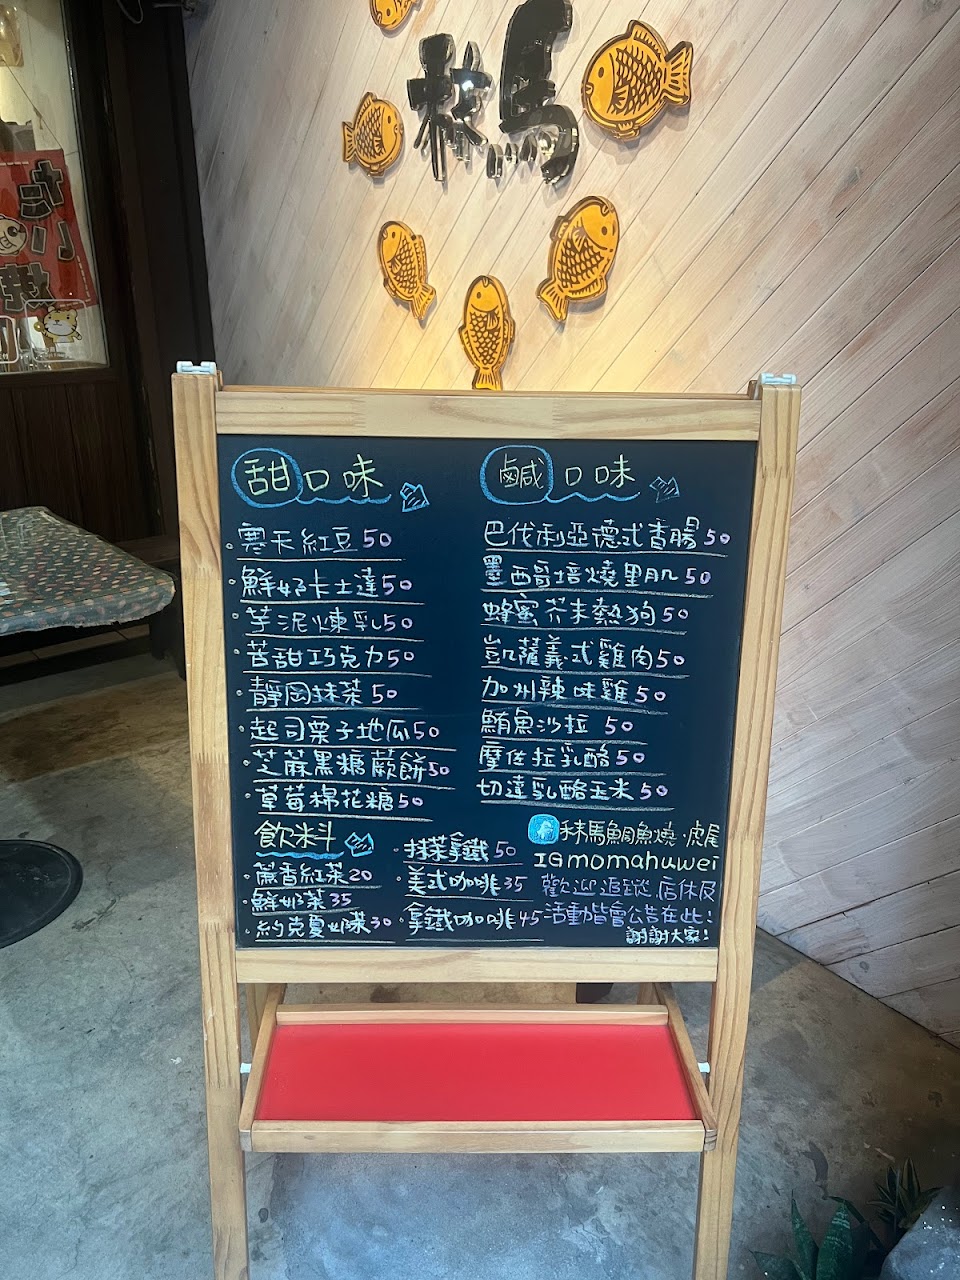 秣馬
甜口味
寒天紅豆50
鮮奶卡士達50
芋泥煉乳50
苦甜巧克力50
靜岡抹茶50
起司栗子地瓜50
芝麻黑糖蕨餅50
草莓棉花糖50
鹹口味
巴伐利亞德式香腸50
墨西哥培燒里肌50
蜂蜜芥末熱狗50
凱薩義式雞肉50
加州辣味雞50
鮪魚沙拉 50
摩佐拉乳酪50
切達乳酪玉米50
飲料
蔗香紅茶20
鮮奶茶35
約克夏奶茶30
抹茶拿鐵50
美式咖啡35
拿鐵咖啡45
秣馬鯛魚燒·虎尾
IG momahuwei
歡迎追蹤、店休及
活動皆會公告在此!
謝謝大家!